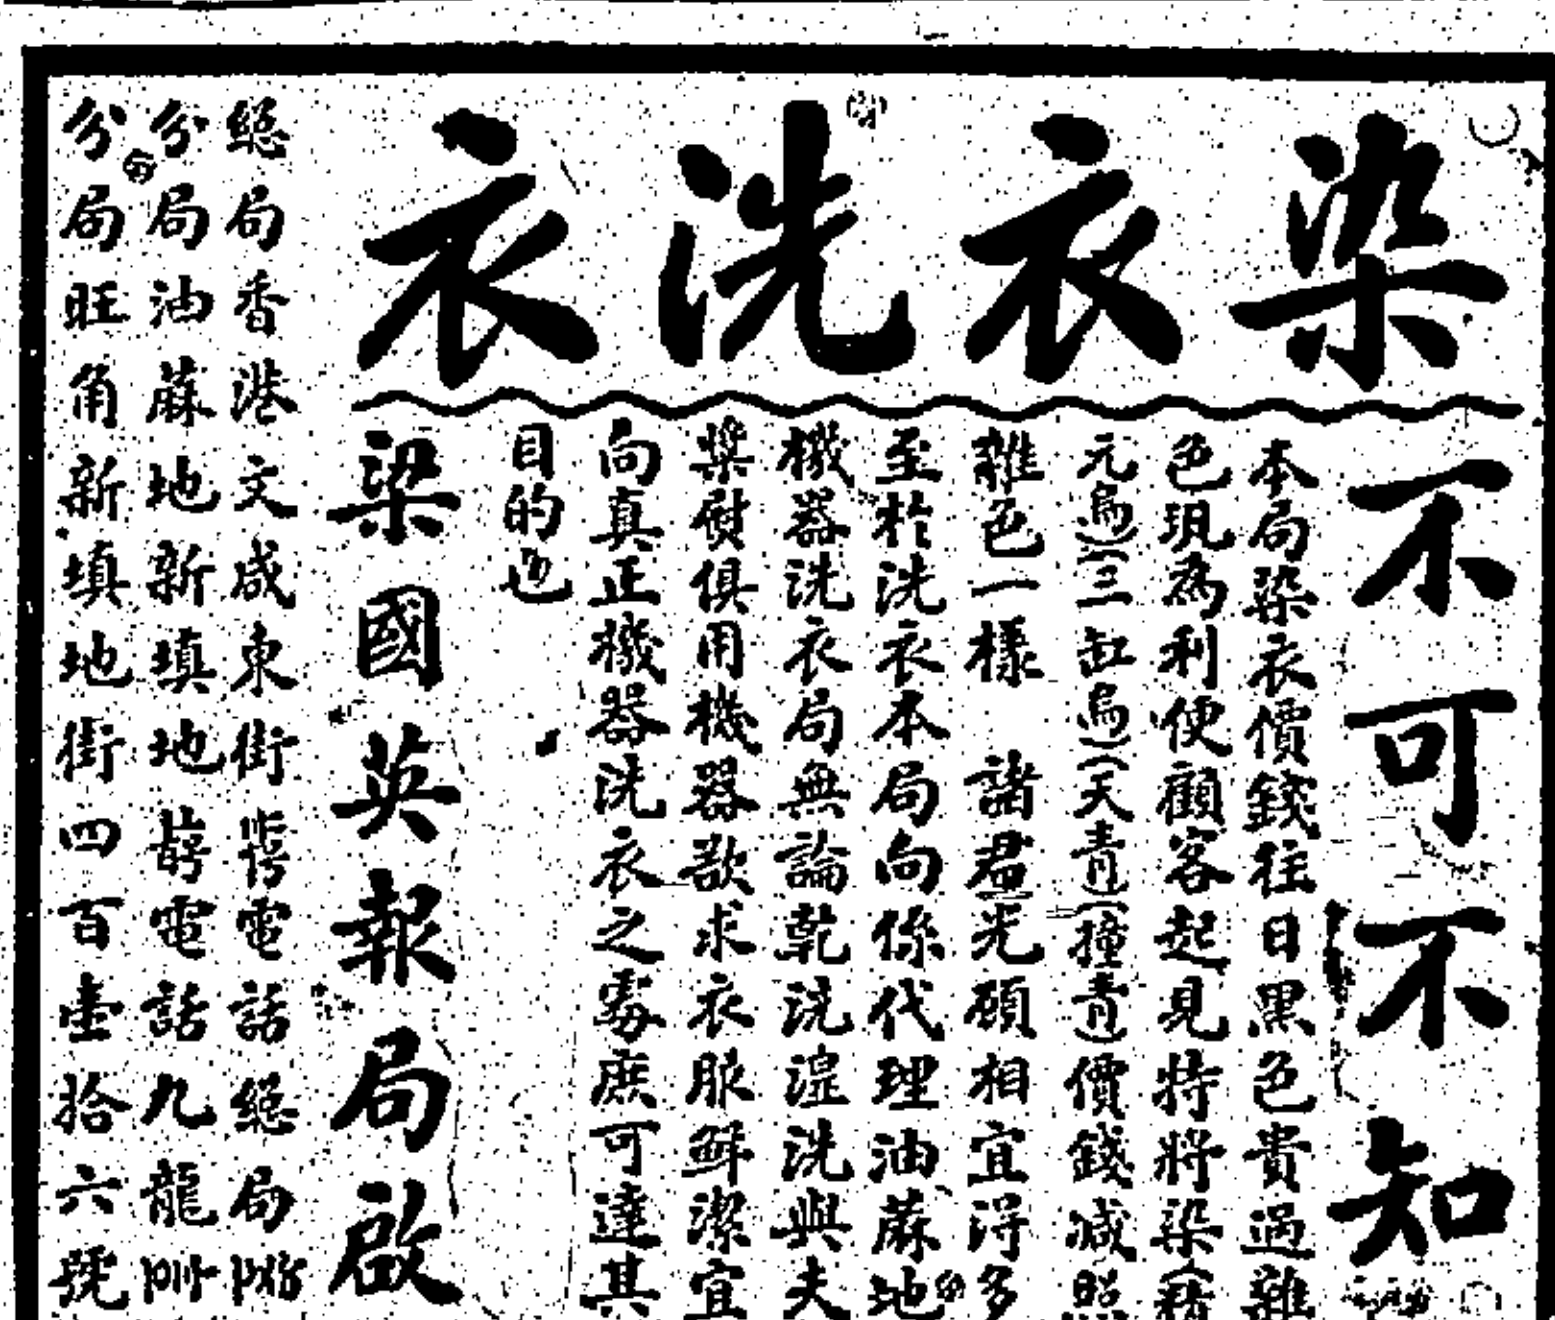 染衣洗衣
不可不知
本局染衣價錢往日黑色貴過雜
色現為利便顧客起見特將染(藉
元烏)(三缸烏)(天青)(撞青)價錢減照
雜色一樣 諸君光顧相宜得多
至於洗衣本局向係代理油蔴地
機器洗衣局無論乾洗湿洗與夫
漿熨俱用機器欲求衣服鮮潔宜
向真正機器洗衣之處庶可達其
目的也
梁國英報局啟
總局香港文咸東街 電話總局
分局油蔴地新填地 電話九龍
分局旺角新填地街四百壹拾六號